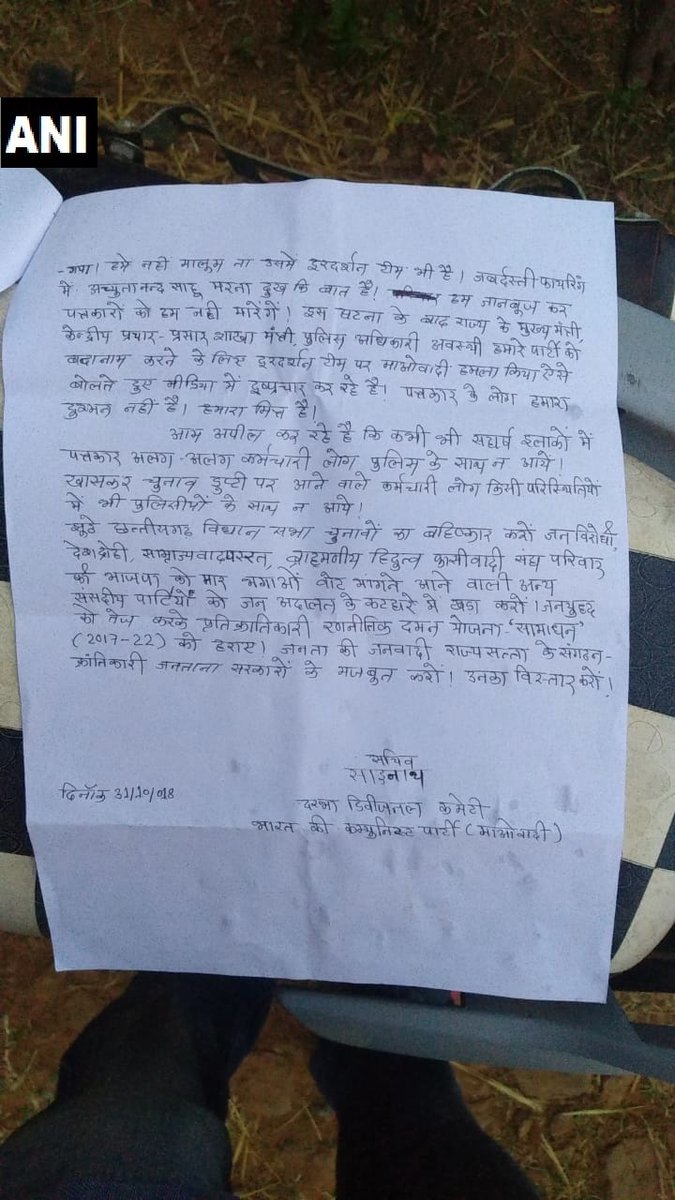 ANI
-गया। हमे नही मालुम ता उसमे दूरदर्शन टीम भी है। जबर्दस्ती फायरिंग
में अच्युतानन्द साहू मरना दुख कि बात है। हम जानबूज कर
पत्रकारों को हम नही मारेंगे। इस घटना के बाद राज्य के मुख्य मंत्री,
केन्द्रीय प्रचार-प्रसार शाखा मंत्री, पुलिस अधिकारी अवस्थी हमारे पार्टी को
बदानाम करने के लिए दूरदर्शन टीम पर माओवादी हमला किया ऐसे
बोलते हुए मीडिया में दुष्प्रचार कर रहे है। पत्रकार के लोग हमारा
दुश्मन नहीं है। हमारा मित्र है।
आम अपील कर रहे है कि कभी भी संघर्ष इलाकों में
पत्रकार अलग-अलग कर्मचारी लोग पुलिस के साथ न आये।
खासकर चुनाव डुप्टी पर आने वाले कर्मचारी लोग किसी परिस्थितियों
में भी पुलिसीयों के साथ न आये।
झूठे छत्तीसगढ़ विधान सभा चुनावों का बहिष्कार करों जन विरोधी,
देशद्रोही, साम्राज्यवादपरस्त, ब्राहमणीय हिंदुत्व फासीवादी संघ परिवार
की भाजपा को मार भगाओं वोट मांगते आने वाली अन्य
संसदीय पार्टियों को जन अदालत के कटघारे मे खडा करो। जनयुद्ध
को तेज करके प्रतिक्रांतिकारी रणनीतिक दमन योजना-'सामाधन'
(2017-22) को हराए। जनता की जनवादी राज्य सत्ता के संगठन-
क्रांतिकारी जनताना सरकारों के मजबुत करों! उनका विस्तार करों!
सचिव
साइनाथ
दिनाँक 31/10/018
दरभा डिवीजनल कमेटी
भारत की कम्युनिस्ट पार्टी (माओवादी)